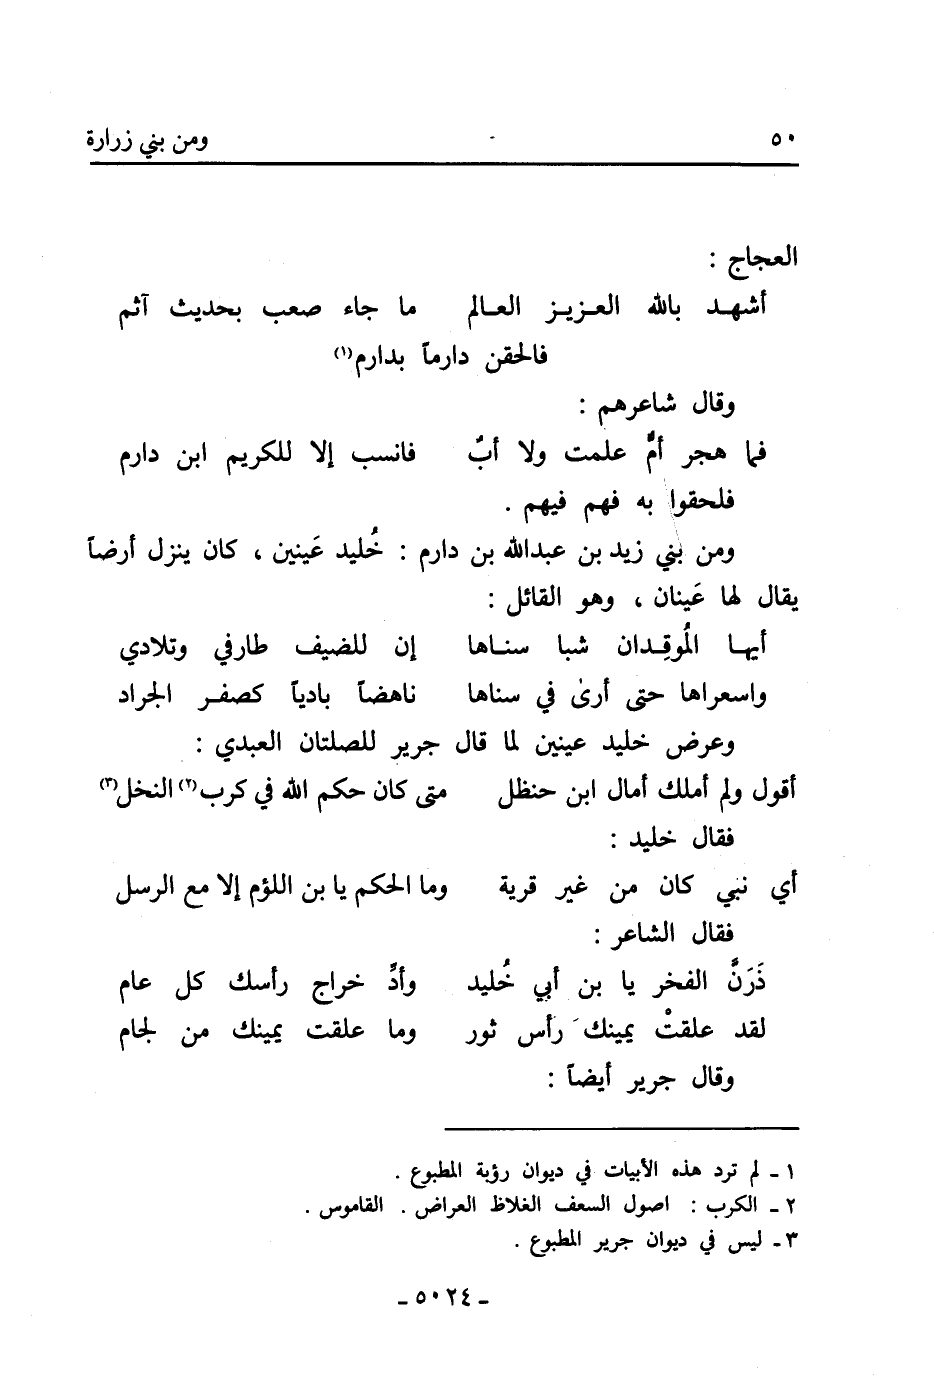 ٥٠ ومن بني زرارة
العجاج :
أشهد بالله العزيز العالم ما جاء صعب بحديث آثم
فالحقن دارماً بدارم(١)
وقال شاعرهم :
فما هجر أمٌّ علمت ولا أبٌ فانسب إلا للكريم ابن دارم
فلحقوا به فهم فيهم .
ومن بني زيد بن عبدالله بن دارم : خُليد عَينين ، كان ينزل أرضاً
يقال لها عَينان ، وهو القائل :
أيها المُوقِدان شبا سناها إن للضيف طارفي وتلادي
واسعراها حتى أرىٰ في سناها ناهضاً بادياً كصفر الجراد
وعرض خليد عينين لما قال جرير للصلتان العبدي :
أقول ولم أملك أمال ابن حنظل متى كان حكم الله في كرب(٢) النخل(٣)
فقال خليد :
أي نبي كان من غير قرية وما الحكم يا بن اللؤم إلا مع الرسل
فقال الشاعر :
ذَرَنَّ الفخر يا بن أبي خُليد وأدِّ خراج رأسك كل عام
لقد علقتْ يمينك رأس ثور وما علقت يمينك من لجام
وقال جرير أيضاً :
١ ـ لم ترد هذه الأبيات في ديوان رؤبة المطبوع .
٢ ـ الكرب : اصول السعف الغلاظ العراض . القاموس .
٣ ـ ليس في ديوان جرير المطبوع .
ـ ٥٠٢٤ ـ